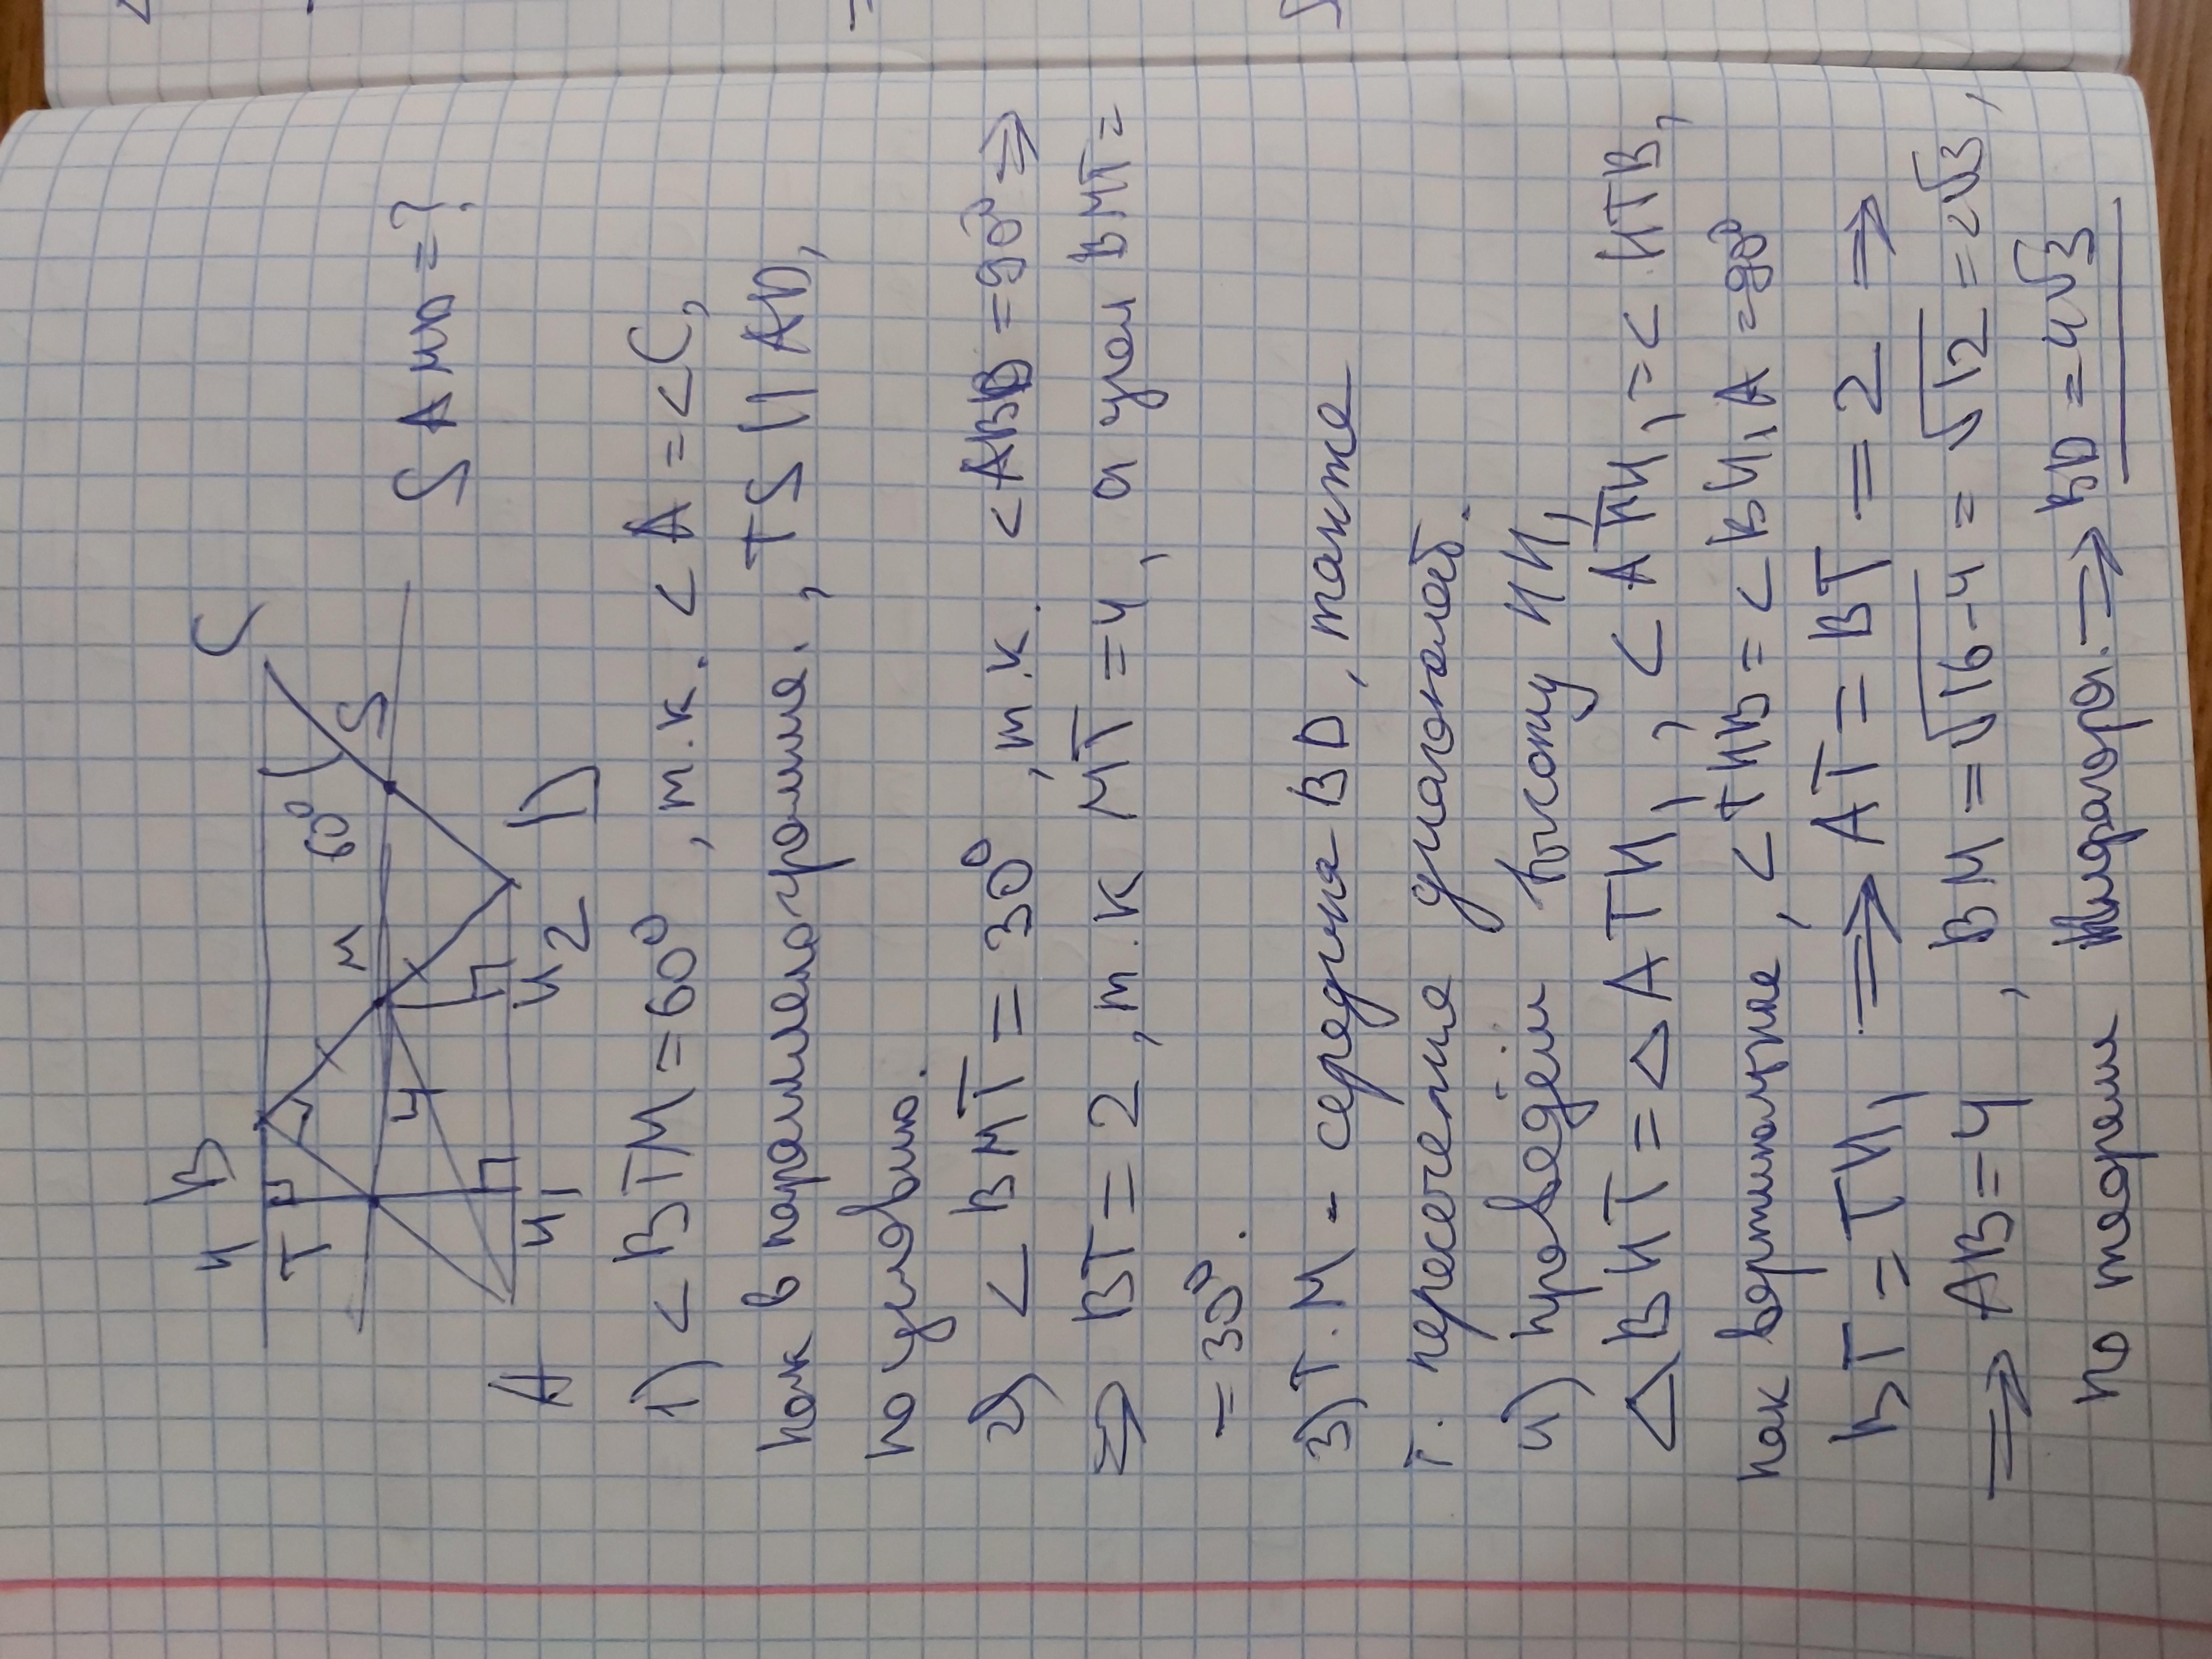 S AMD = ?
H B C
T 60°
M S
4
A H₁ H₂ D
1) < BTM = 60°, т.к. < A = < C,
как в параллелограмме, TS || AD,
по условию.
2) < BMT = 30°, т.к. < ABD = 90° ⇒
⇒ BT = 2, т.к MT = 4, а угол BMT =
= 30°.
3) Т. М - середина BD, также
т. пересечение диагоналей.
4) проведём высоту HH₁
△ BHT = △ ATH₁, < ATH₁ = < HTB,
как вертикалукые, < THB = < BH₁A = 90°
BT = TH₁ ⇒ AT = BT = 2 ⇒
⇒ AB = 4, BM = √16-4 = √12 = 2√3,
по теореме Пифагора. ⇒ BD = 4√3